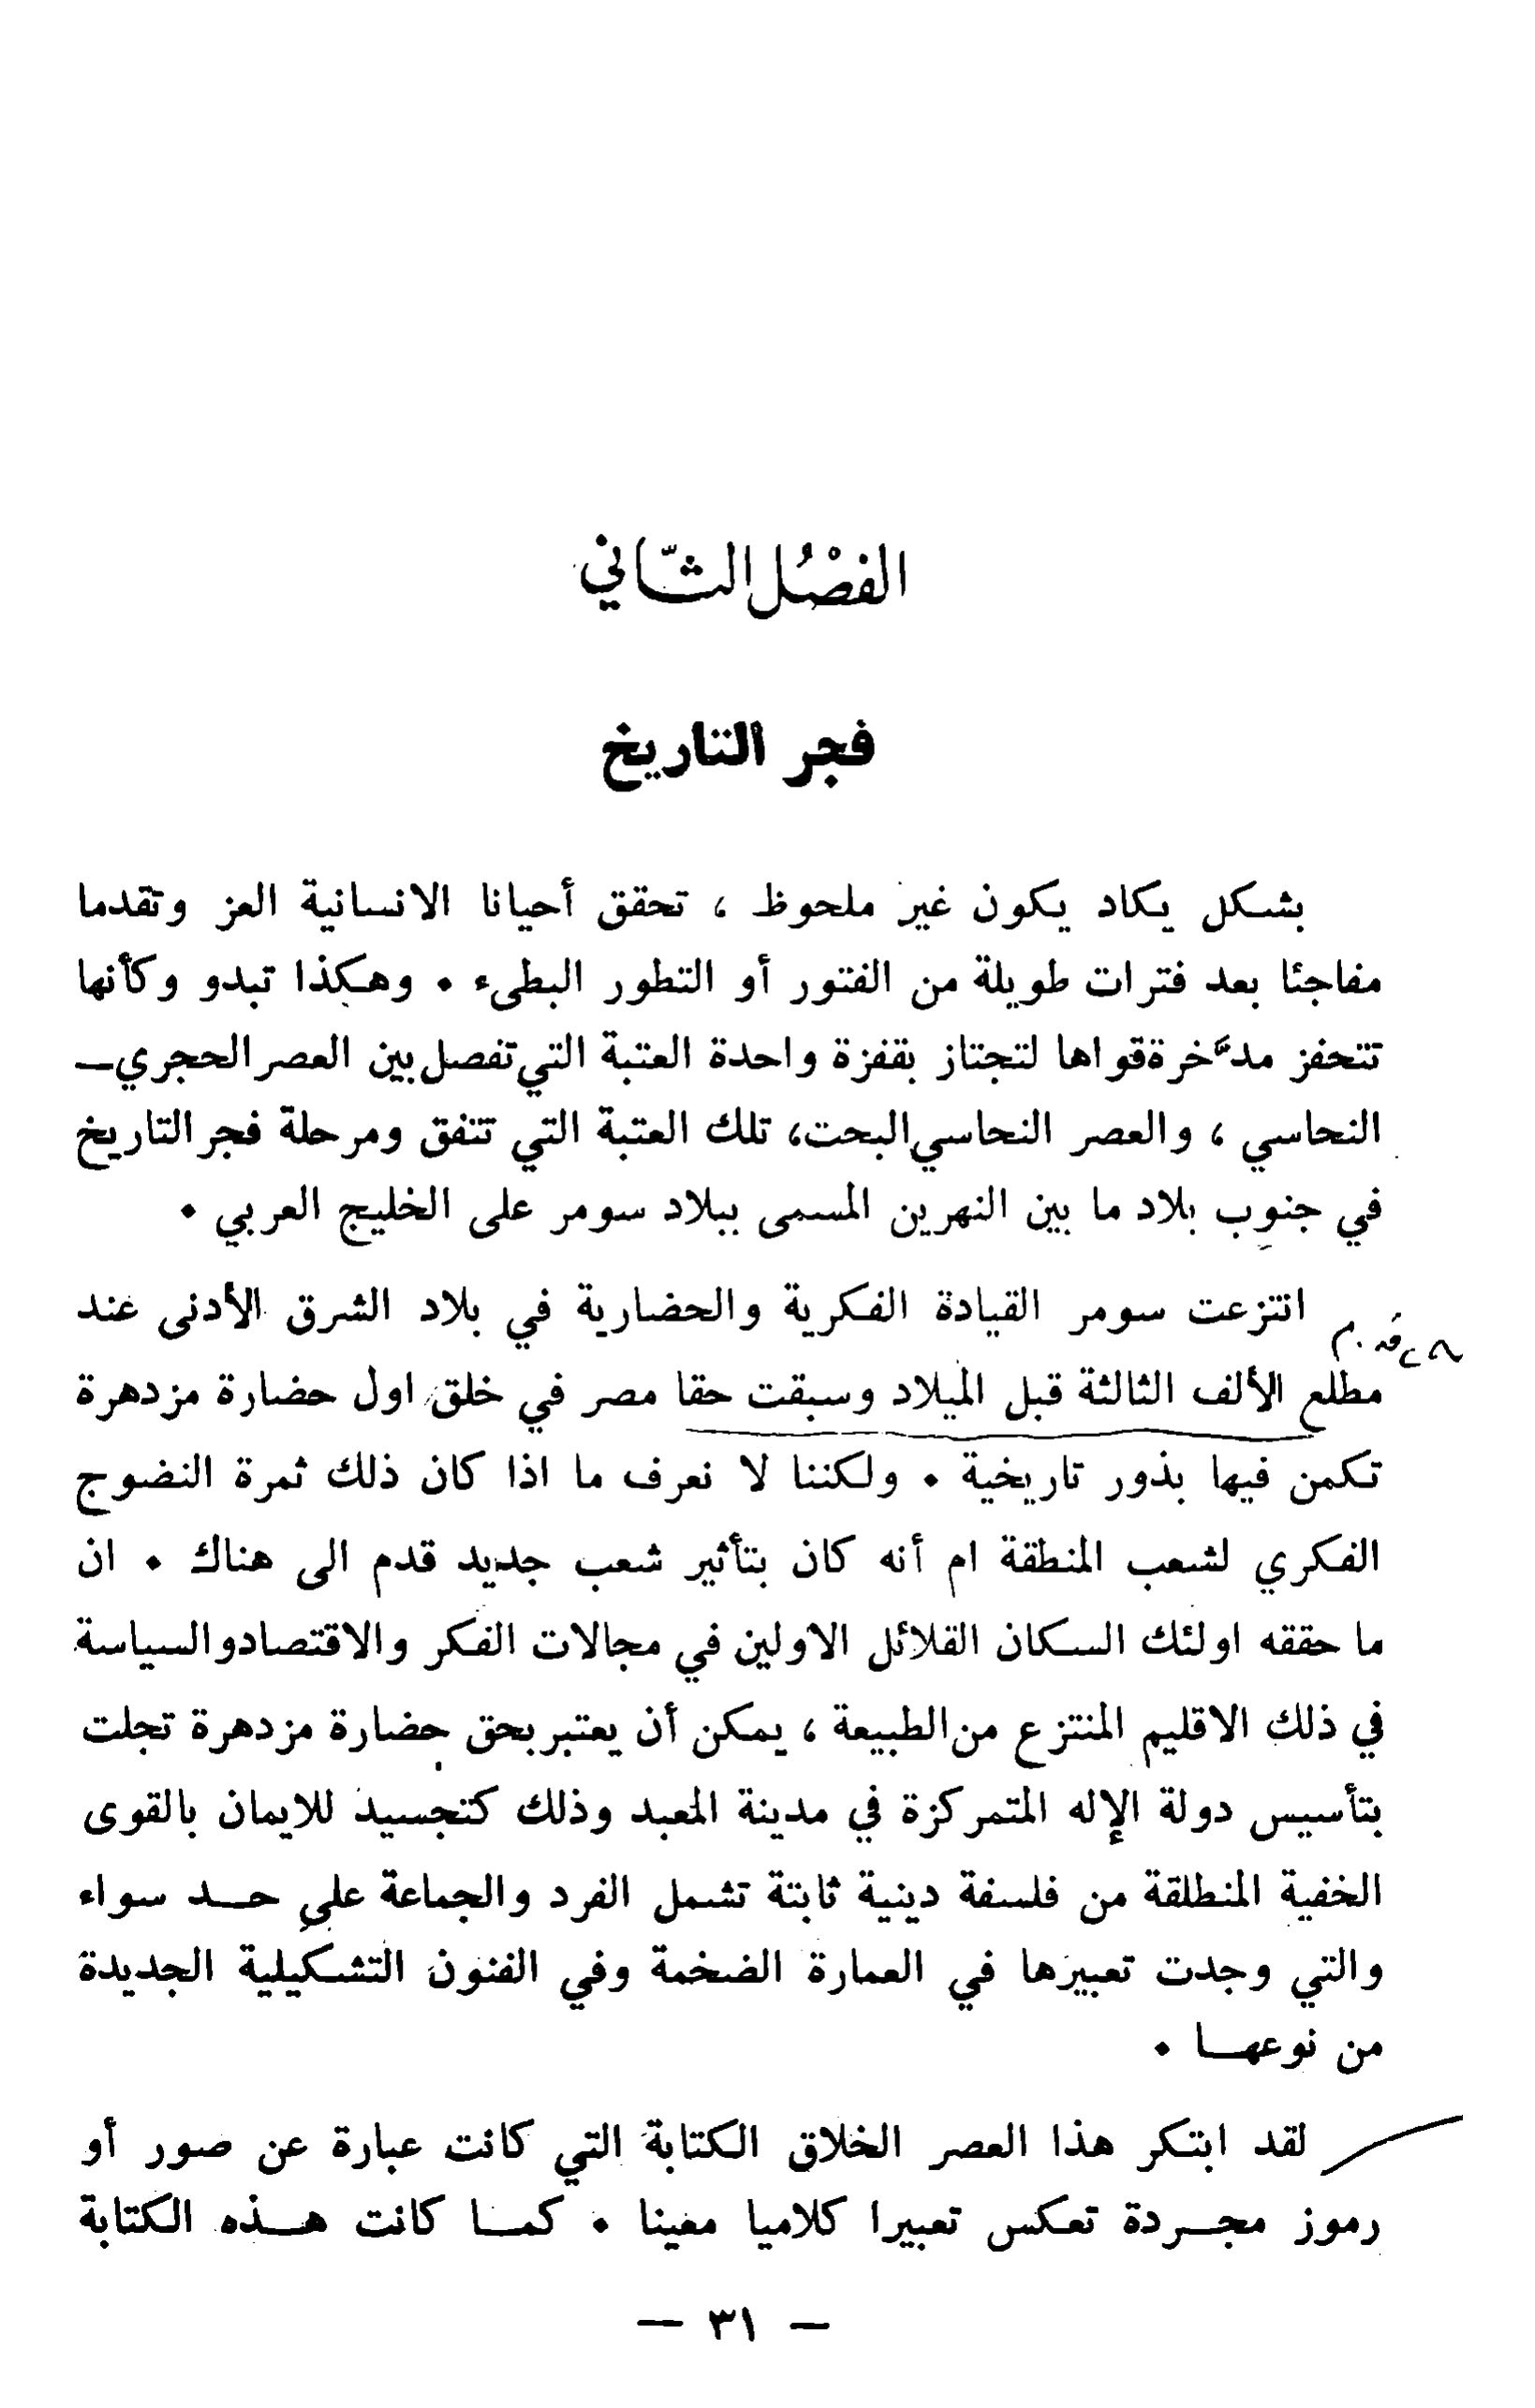 الفصْلُ الثّاني
فجر التاريخ
بشكل يكاد يكون غير ملحوظ ، تحقق أحيانا الانسانية العز وتقدما
مفاجئا بعد فترات طويلة من الفتور أو التطور البطىء • وهكذا تبدو وكأنها
تتحفز مدّخرة قواها لتجتاز بقفزة واحدة العتبة التي تفصل بين العصر الحجري —
النحاسي ، والعصر النحاسي البحت، تلك العتبة التي تتفق ومرحلة فجر التاريخ
في جنوب بلاد ما بين النهرين المسمى ببلاد سومر على الخليج العربي •
انتزعت سومر القيادة الفكرية والحضارية في بلاد الشرق الأدنى عند
مطلع الألف الثالثة قبل الميلاد وسبقت حقا مصر في خلق اول حضارة مزدهرة
تكمن فيها بذور تاريخية • ولكننا لا نعرف ما اذا كان ذلك ثمرة النضوج
الفكري لشعب المنطقة ام أنه كان بتأثير شعب جديد قدم الى هناك • ان
ما حققه اولئك السكان القلائل الاولين في مجالات الفكر والاقتصاد والسياسة
في ذلك الاقليم المنتزع من الطبيعة ، يمكن أن يعتبر بحق حضارة مزدهرة تجلت
بتأسيس دولة الإله المتمركزة في مدينة المعبد وذلك كتجسيد للايمان بالقوى
الخفية المنطلقة من فلسفة دينية ثابتة تشمل الفرد والجماعة على حد سواء
والتي وجدت تعبيرها في العمارة الضخمة وفي الفنون التشكيلية الجديدة
من نوعها •
لقد ابتكر هذا العصر الخلاق الكتابة التي كانت عبارة عن صور أو
رموز مجردة تعكس تعبيرا كلاميا معينا • كما كانت هذه الكتابة
— ٣١ —